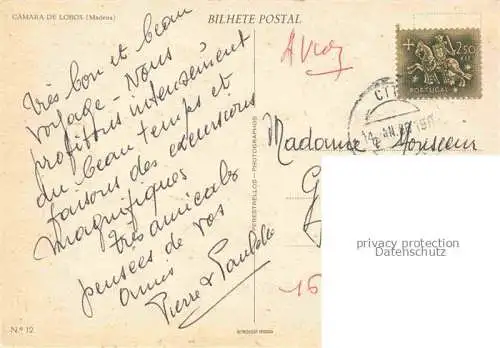 CÂMARA DE LOBOS (Madeira)
BILHETE POSTAL
Très bon et beau
voyage - Nous
profitons intensément
du beau temps et
faisons des excursions
magnifiques
très amicales
pensées de vos
amis
Pierre & Paulette
Avion
2$50
PORTUGAL
Madame Monsieur
privacy protection
Datenschutz
PERESTRELLOS - PHOTOGRAPHOS
16
N.º 12